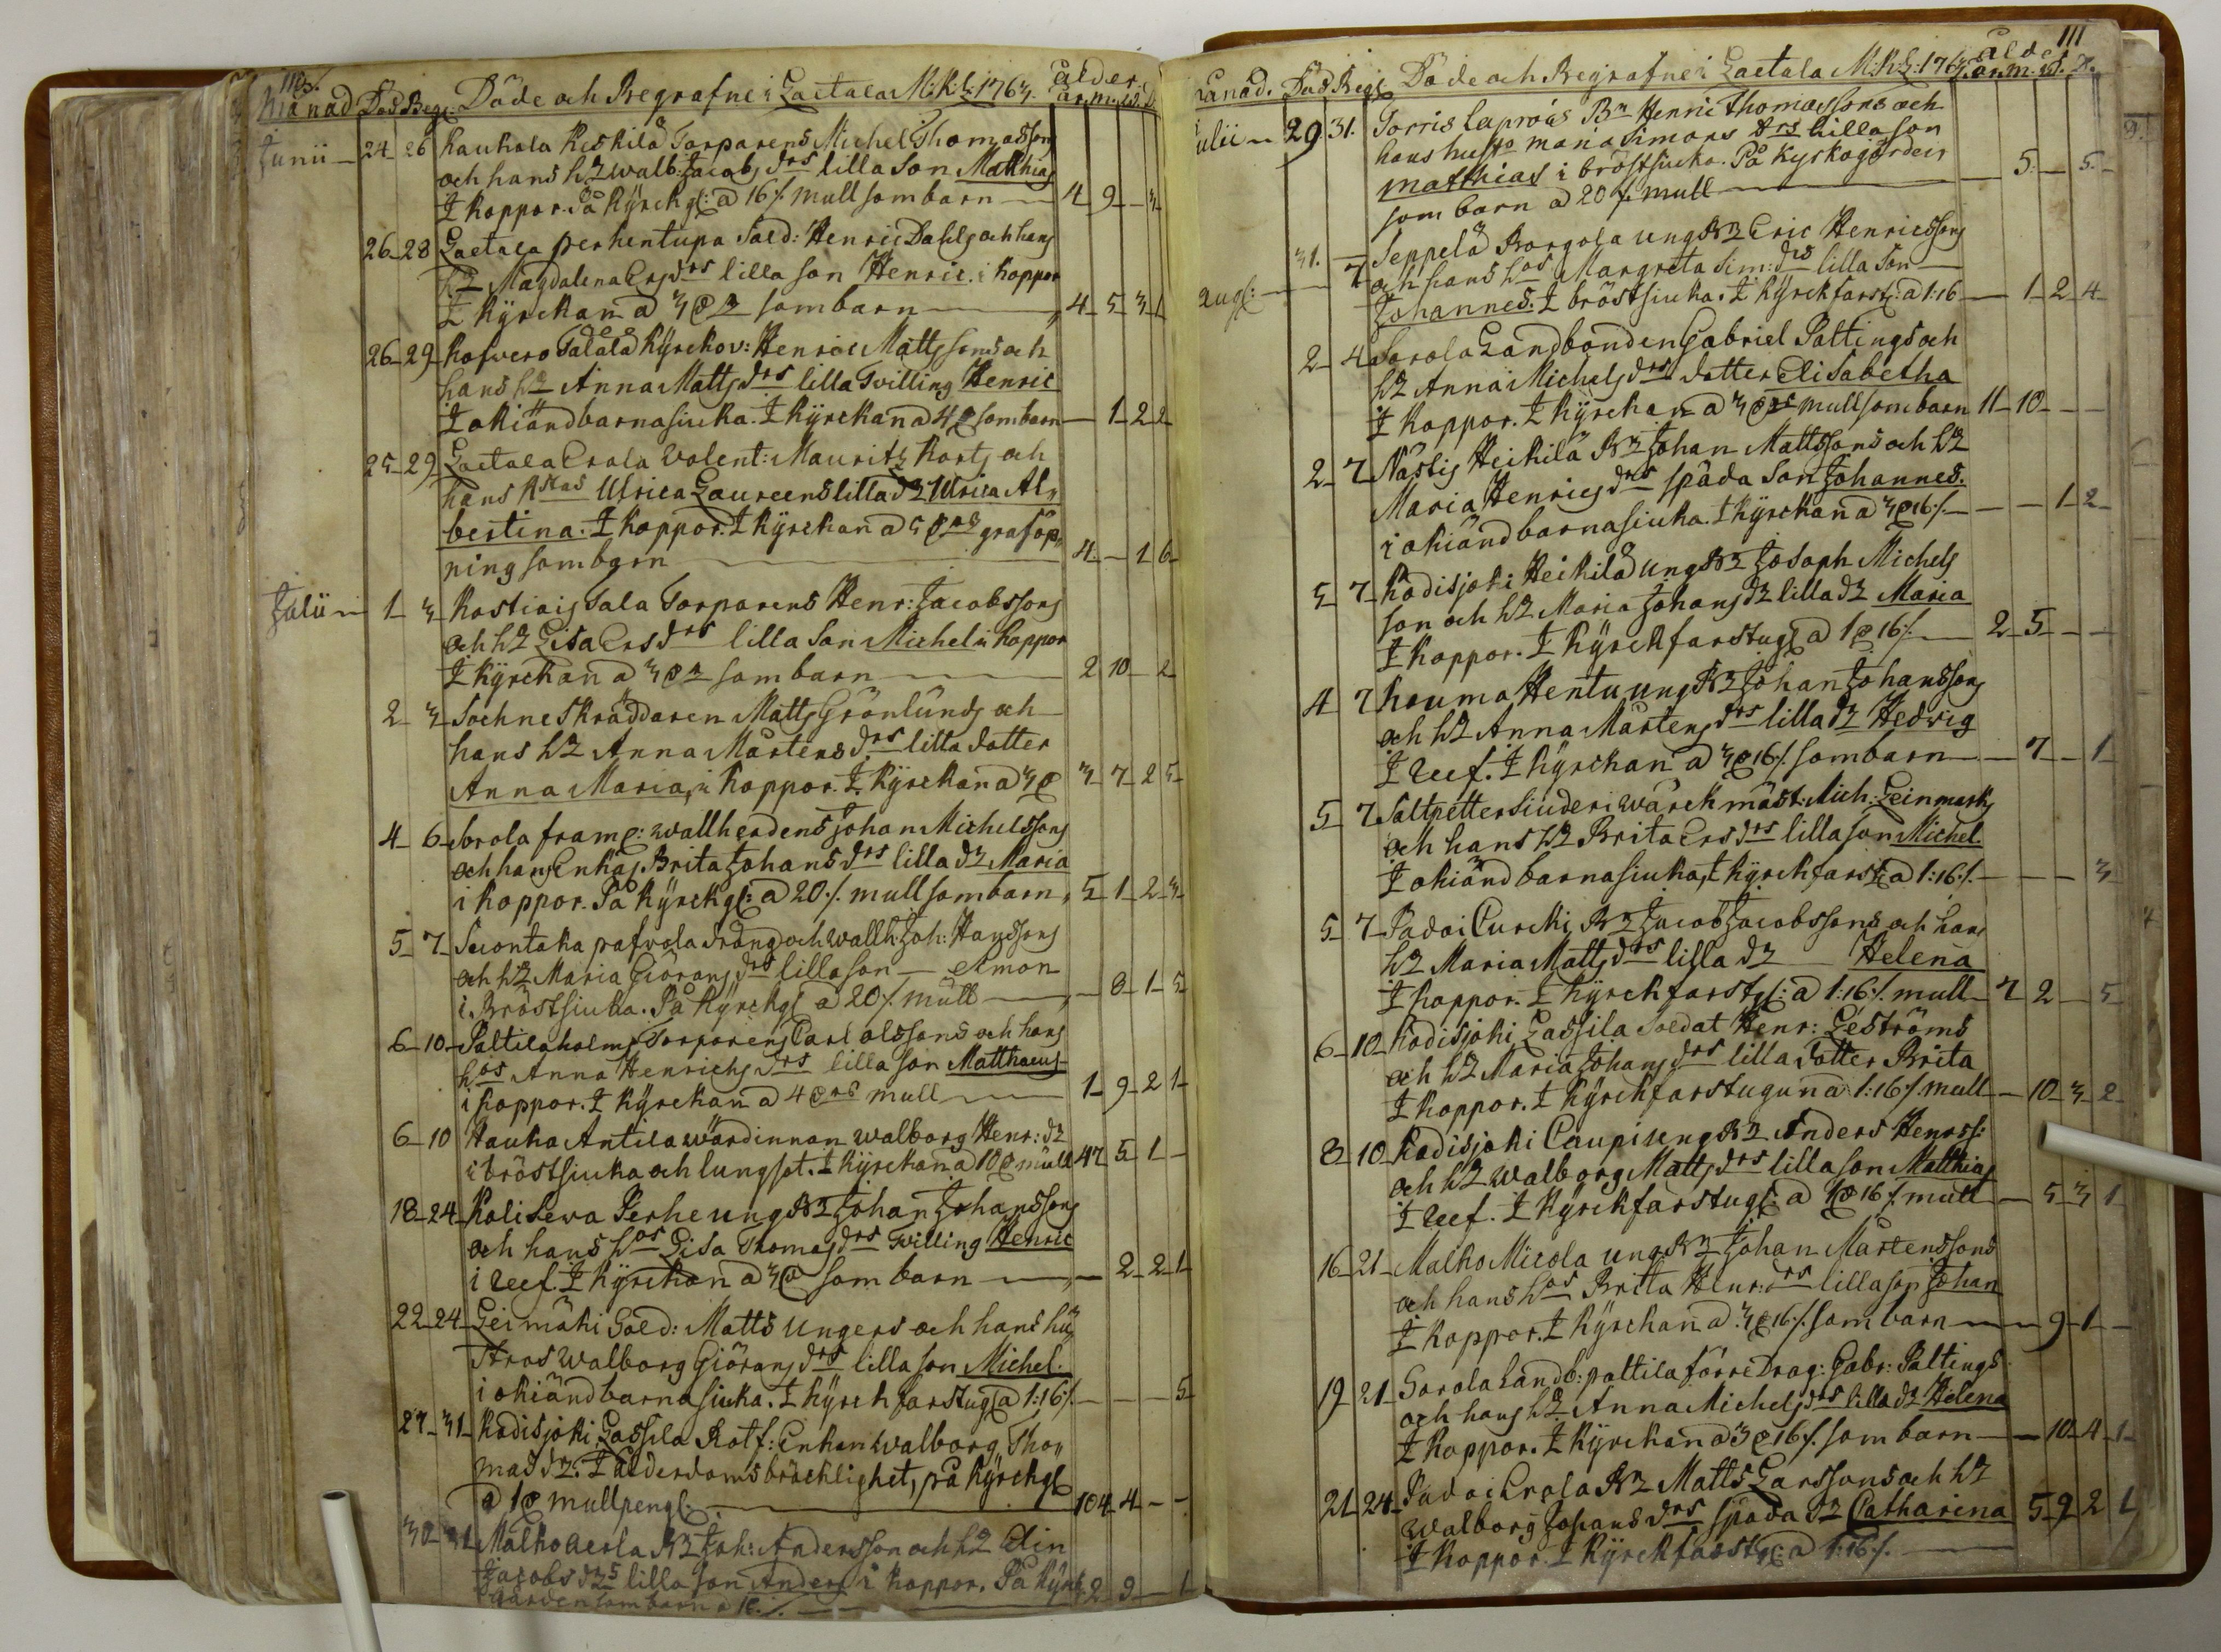 110.
Månad Död Begr. Döde och Begrafne i Laetala M:K:L: 1763. ålder
år. m. w. d.
Junii 24 26 Kaukola Keskilä Torparens Michel Thomassons
och hans hz walb: Jacobs drs lilla Son Matthias
I koppor. På Kyrckg: a 16 /. mull som barn 4 9 – 3
26 28 Laetala perhentupa Sold: Henric Dahls och hans
hz Magdalena Ers drs lilla son Henric. i koppor
I Kyrckan a 3 som barn 4 5 3 1
26 29 Kafvero Talala Kyrckov: Henric Mattssons och
hans hz Anna Matts drs lilla Tvilling Henric
I okiänd barnasiuka. I Kyrckan a 4 som barn – 1 2 2
25 29 Laetala Erola Volent: Maurits Korts och
hans Ulrica Laureens lilla dz Ulrica Al„
bertina. I koppor. I Kyrckan a 5 grafop„
ning som barn 4 – 1 6
Julii 1 3 Kostiais Sala Torparens Henr: Jacobssons
och hz Lisa Ers drs lilla Son Michel i koppor
I Kyrckan a 3 som barn 2 10 – 2
2 3 Sochne Skräddaren Matts Grönlunds och
hans hz Anna Mårtens drs lilla dotter
Anna Maria, i koppor. I Kyrckan a 3 3 7 2 5
4 6 wallherdens Johan Michelssons
och hans Enkas Brita Johans drs lilla dz Maria
i koppor. På Kyrckg: a 20 /. mull som barn 5 1 2 3
5 7 Suontaka pafvola dräng och wallh: Joh: Hanssons
och hz Maria Giörans drs lilla son Simon
i Bröstsiuka. På Kyrckg a 20 /. mull – 8 1 5
6 10 Paltila holms Torparens Carl olssons och hans
hos Anna Henrichs drs lilla son Matthaeus
i koppor. I Kyrckan a 4 mull 1 9 2 1
6 10 Hauka Antila wärdinnan walborg Henr: dz
i bröstsiuka och lungsot. I Kyrckan a 10 mull 47 5 1 –
18 24 Kolisewa Perhe ungBz Johan Johanssons
och hans hos Lisa Thomas drs Tvilling Henric
i reef. I Kyrckan a 3 som barn – 2 2 1
22 24 Leimäki Sold: Matts Ungers och hans hu„
stros Walborg Giörans drs lilla son Michel.
i okiänd barnasiuka. I Kyrckfarstug a 1:16 /. – – – 5
27 31 Kodisjoki Lassila Rotf: Enkan Walborg Tho„
mas dz. I ålderdoms bräcklighet, på Kyrckg
a 10 mullpeng: 104 4 – –
30 31 Malko aerla Bz Joh: Andersson och hz Elin
Jacobs dzs lilla son Anders i koppor. På Kyrk
gården som barn a 16 /. 2 9 – 1
111
Månad. Död Begr Döde och Begrafne i Laetala M:K:L: 1763. ålder
år. m. w. d.
Julii 29 31. Torris laproås Bn Henric Thomassons och
hans husto maria Simons drs lilla son
matthias i bröstsiuka. På Kyrkogården
som barn a 20 /. mull – 5 – 5
31. – Seppelä Borgola ung Bz Eric Henricssons
Aug: 7 och hans hos Margreta Sim: drs lilla Son
Johannes. I bröstsiuka. I Kyrckfarst: a 1:16 – 1 2 4
2 4 Sorola Landbonden Gabriel Paltings och
hz Anna Michels drs dotter Elisabetha
I koppor. I Kyrckan a 3 mull som barn 11 10 – –
2 7 Nästis Heikilä Bz Johan Mattssons och hz
Maria Henrics drs späda Son Johannes.
i okiänd barnasiuka. I Kyrckan a 3 16 /. – – 1 2
5 7 Kodisjoki Heikilä ung Bz Joseph Michels
son och hz Maria Johans dz lilla dz Maria
I koppor. I Kyrckfarstug a 1 16 /. 2 5 – –
4 7 Kouma Hentu ung Bz Johan Johanssons
och hz Anna Mårtens drs lilla dz Hedwig
I reef. I Kyrckan a 3 16 /. som barn – 7 – 1
5 7 Saltpettersiuderi wärckmäst: Mich: Leinmarks
och hans hz Brita Ers drs lilla son Michel.
I okiänd barnasiuka, I Kyrckfarst a 1:16 /. – – – 3
5 7 Padoi Curcki Bz Jacob Jacobssons och hans
hz Maria Matts drs lilla dz Helena
I koppor. I Kyrckfarstg: a 1:16 /. mull 7 2 – 5
6 10 Kodisjoki Lassila Soldat Henr: Leströms
och hz Maria Johans drs lilla dotter Brita
I koppor. I Kyrckfarstugun a 1:16 /. mull – 10 3 2
8 10 Kodisjoki Caupi ung Bz Anders Henrss:
och hz Walborg Matts drs lilla son Matthias
I reef. I Kyrckfarstug a 1 16 /. mull – 5 3 1
16 21 Malko Micola ung Bz Johan Mårtenssons
och hans hos Brita Henr: drs lilla son Johan
I koppor. I Kyrckan a 3 16 /. som barn – 9 1 –
19 21 Sorola Landb: paltila förre Drag: Gabr: Paltings
och hans hz Anna Michels drs lilla dz Helena
I koppor. I Kyrckan a 3 16 /. som barn – 10 4 1
21 24 Padoi Erola Bz Matts Larssons och hz
Walborg Johans drs späda dz Catharina 5 9 2 1
I koppor. I Kyrckfarstg: a 1:16 /.